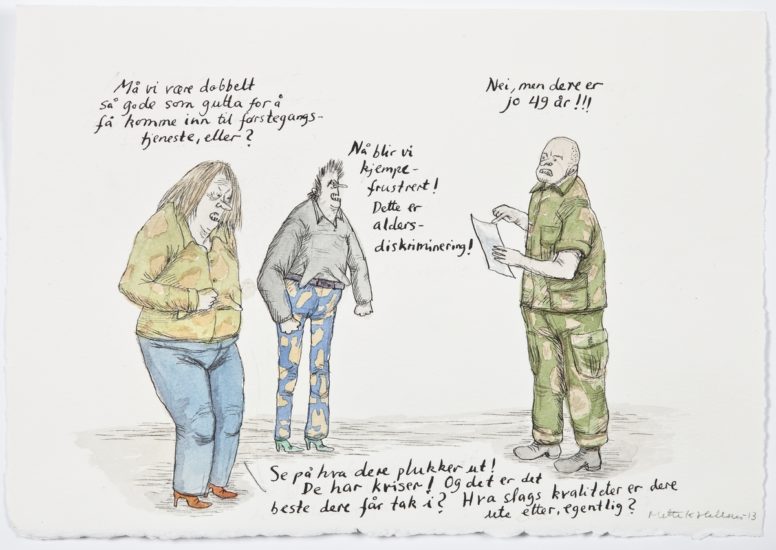 Må vi være dobbelt
så gode som gutta for å
få komme inn til førstegangs-
tjeneste, eller?
Nei, men dere er
jo 49 år!!!
Nå blir vi
kjempe-
frustrert!
Dette er
alders-
diskriminering!
Se på hva dere plukker ut!
De har kriser! Og det er det
beste dere får tak i? Hva slags kvaliteter er dere
ute etter, egentlig?
Mette Hellenes 13